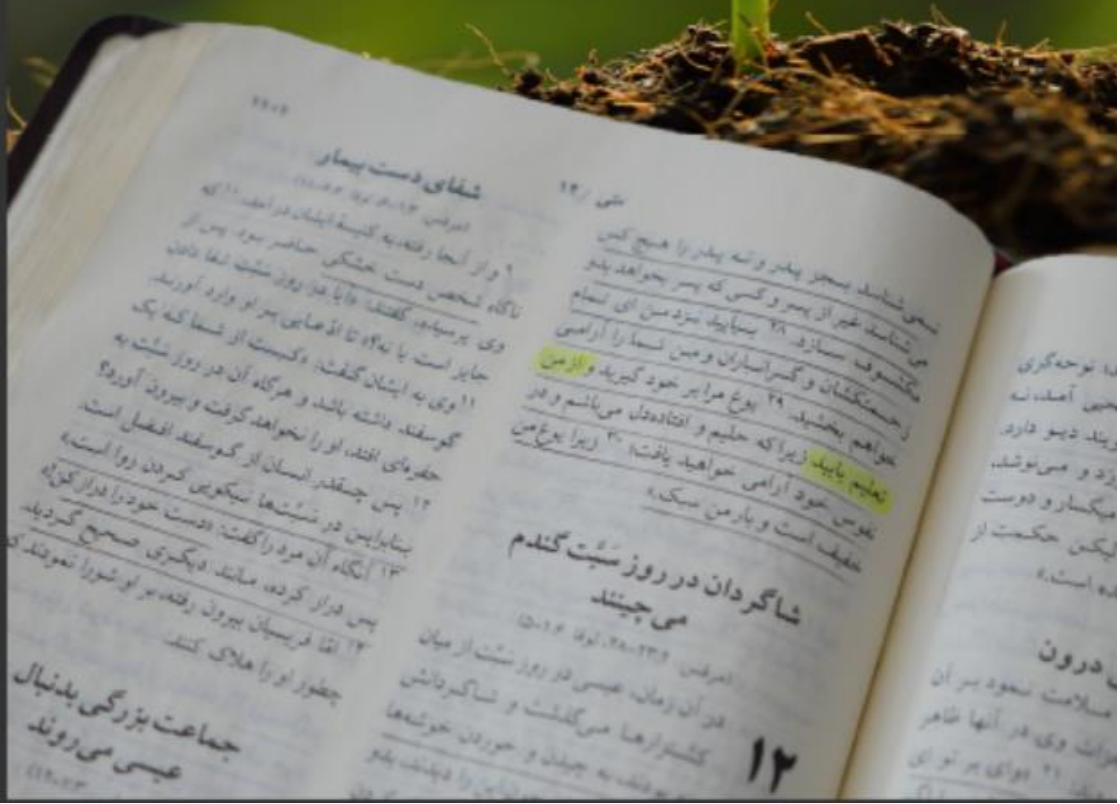 متی / ۱۲
نمی‌شناسد بجز پدر و نه پدر را هیچ کس
می‌شناسد غیر از پسر و کسی که پسر بخواهد بدو
مکشوف سازد. ۲۸ بیایید نزد من ای تمام
زحمتکشان و گرانباران و من شما را آرامی
خواهم بخشید. ۲۹ یوغ مرا بر خود گیرید و از من
تعلیم یابید زیرا که حلیم و افتاده‌دل می‌باشم و در
نفوس خود آرامی خواهید یافت؛ ۳۰ زیرا یوغ من
خفیف است و بار من سبک.»
شاگردان در روز سَبَّت گندم
می‌چینند
۱۲
در آن زمان، عیسی در روز سَبَّت از میان
کشتزارها می‌گذشت و شاگردانش
به چیدن و خوردن خوشه‌ها
را دیدند، بدو
شفای دست بیمار
۹ و از آنجا رفته، به کنیسهٔ ایشان درآمد، ۱۰ که
ناگاه شخص دست خشکی حاضر بود. پس از
وی پرسیده، گفتند: «آیا در روز سَبَّت شفا دادن
جایز است یا نه؟» تا ادعایی بر او وارد آورند.
۱۱ وی به ایشان گفت: «کیست از شما که یک
گوسفند داشته باشد و هرگاه آن در روز سَبَّت به
حفره‌ای افتد، او را نخواهد گرفت و بیرون آورد؟
۱۲ پس چقدر انسان از گوسفند افضل است.
بنابراین در سَبَّت‌ها نیکویی کردن روا است.»
۱۳ آنگاه آن مرد را گفت: «دست خود را دراز کن!»
پس دراز کرده، مانند دیگری صحیح گردید.
۱۴ اما فریسیان بیرون رفته، بر او شورا نمودند که
چطور او را هلاک کنند.
جماعت بزرگی بدنبال
عیسی می‌روند
نوحه‌گری
آمد، نه
دیو دارد.
و می‌نوشد،
میگسار و دوست
لیکن حکمت از
است.»
درون
ملامت نمود بر آن
وی در آنها ظاهر
۲۱ «وای بر تو ای